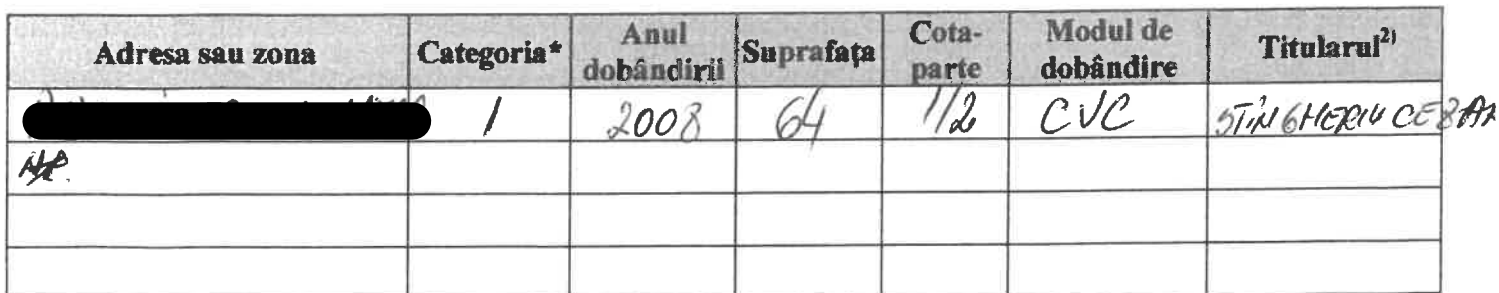 Adresa sau zona Categoria* Anul dobândirii Suprafața Cota-parte Modul de dobândire Titularul2)
1 2008 64 1/2 CVC